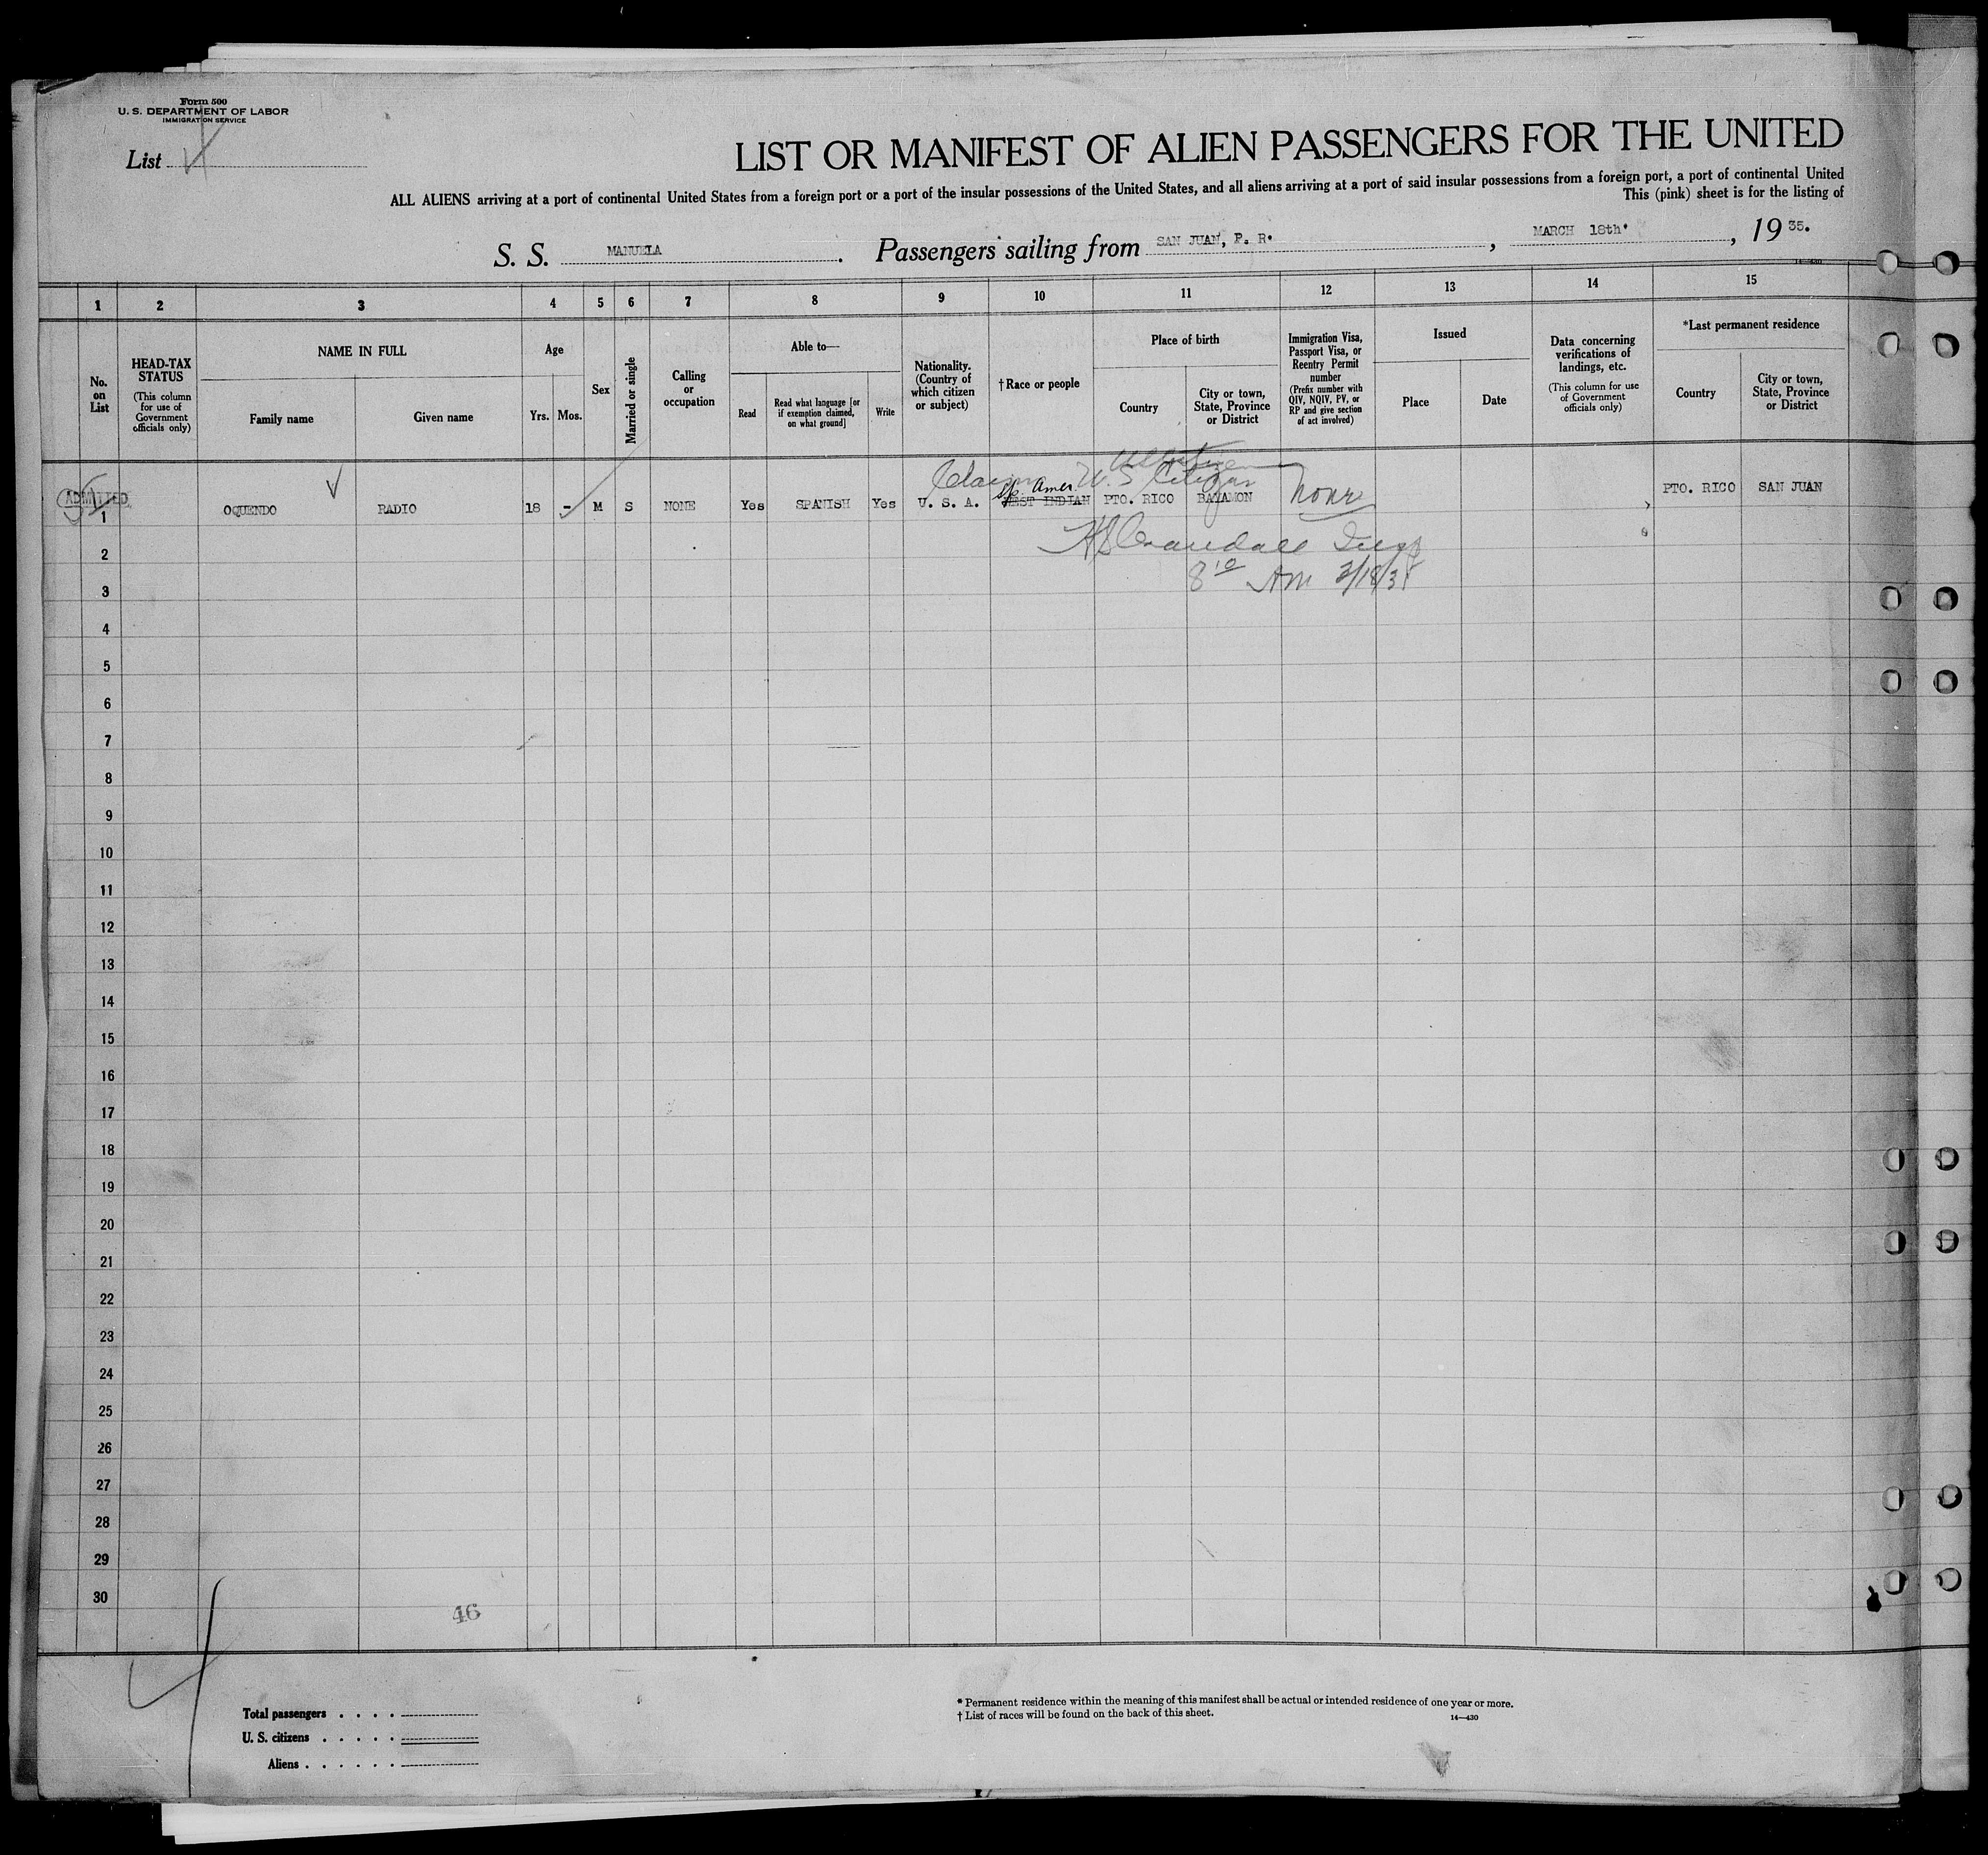 Form 500
U. S. DEPARTMENT OF LABOR
IMMIGRATION SERVICE
List
LIST OR MANIFEST OF ALIEN PASSENGERS FOR THE UNITED
ALL ALIENS arriving at a port of continental United States from a foreign port or a port of the insular possessions of the United States, and all aliens arriving at a port of said insular possessions from a foreign port, a port of continental United
This (pink) sheet is for the listing of
S. S. MANUELA . Passengers sailing from SAN JUAN, P. R. , MARCH 18th. , 19 35.
14—430
1 2 3 4 5 6 7 8 9 10 11 12 13 14 15
No. on List
HEAD-TAX STATUS
(This column for use of Government officials only)
NAME IN FULL
Family name
Given name
Age
Yrs. Mos.
Sex
Married or single
Calling or occupation
Able to—
Read
Read what language [or if exemption claimed, on what ground]
Write
Nationality. (Country of which citizen or subject)
†Race or people
Place of birth
Country
City or town, State, Province or District
Immigration Visa, Passport Visa, or Reentry Permit number
(Prefix number with QIV, NQIV, PV, or RP and give section of act involved)
Issued
Place
Date
Data concerning verifications of landings, etc.
(This column for use of Government officials only)
*Last permanent residence
Country
City or town, State, Province or District
Claims U.S Citizen
Sp. Amer
ADMITTED
1 OQUENDO RADIO 18 - M S NONE Yes SPANISH Yes U. S. A. WEST INDIAN PTO. RICO BAYAMON None PTO. RICO SAN JUAN
HS Crandall Insp
8 10 AM 3/18/35
2
3
4
5
6
7
8
9
10
11
12
13
14
15
16
17
18
19
20
21
22
23
24
25
26
27
28
29
30
46
Total passengers . . . .
U. S. citizens . . . . .
Aliens . . . . . .
* Permanent residence within the meaning of this manifest shall be actual or intended residence of one year or more.
† List of races will be found on the back of this sheet.
14—430